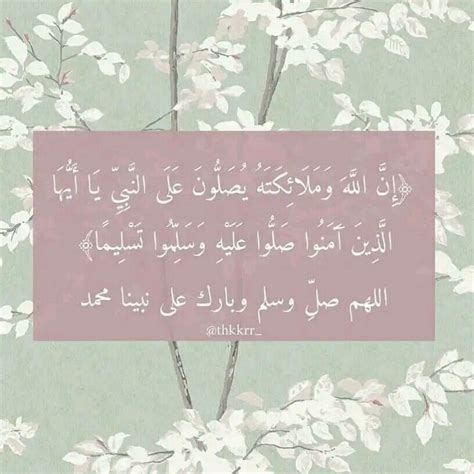 ﴿إِنَّ اللَّهَ وَمَلَائِكَتَهُ يُصَلُّونَ عَلَى النَّبِيِّ يَا أَيُّهَا
الَّذِينَ آمَنُوا صَلُّوا عَلَيْهِ وَسَلِّمُوا تَسْلِيمًا﴾
اللهم صلِّ وسلم وبارك على نبينا محمد
@thkkrr_